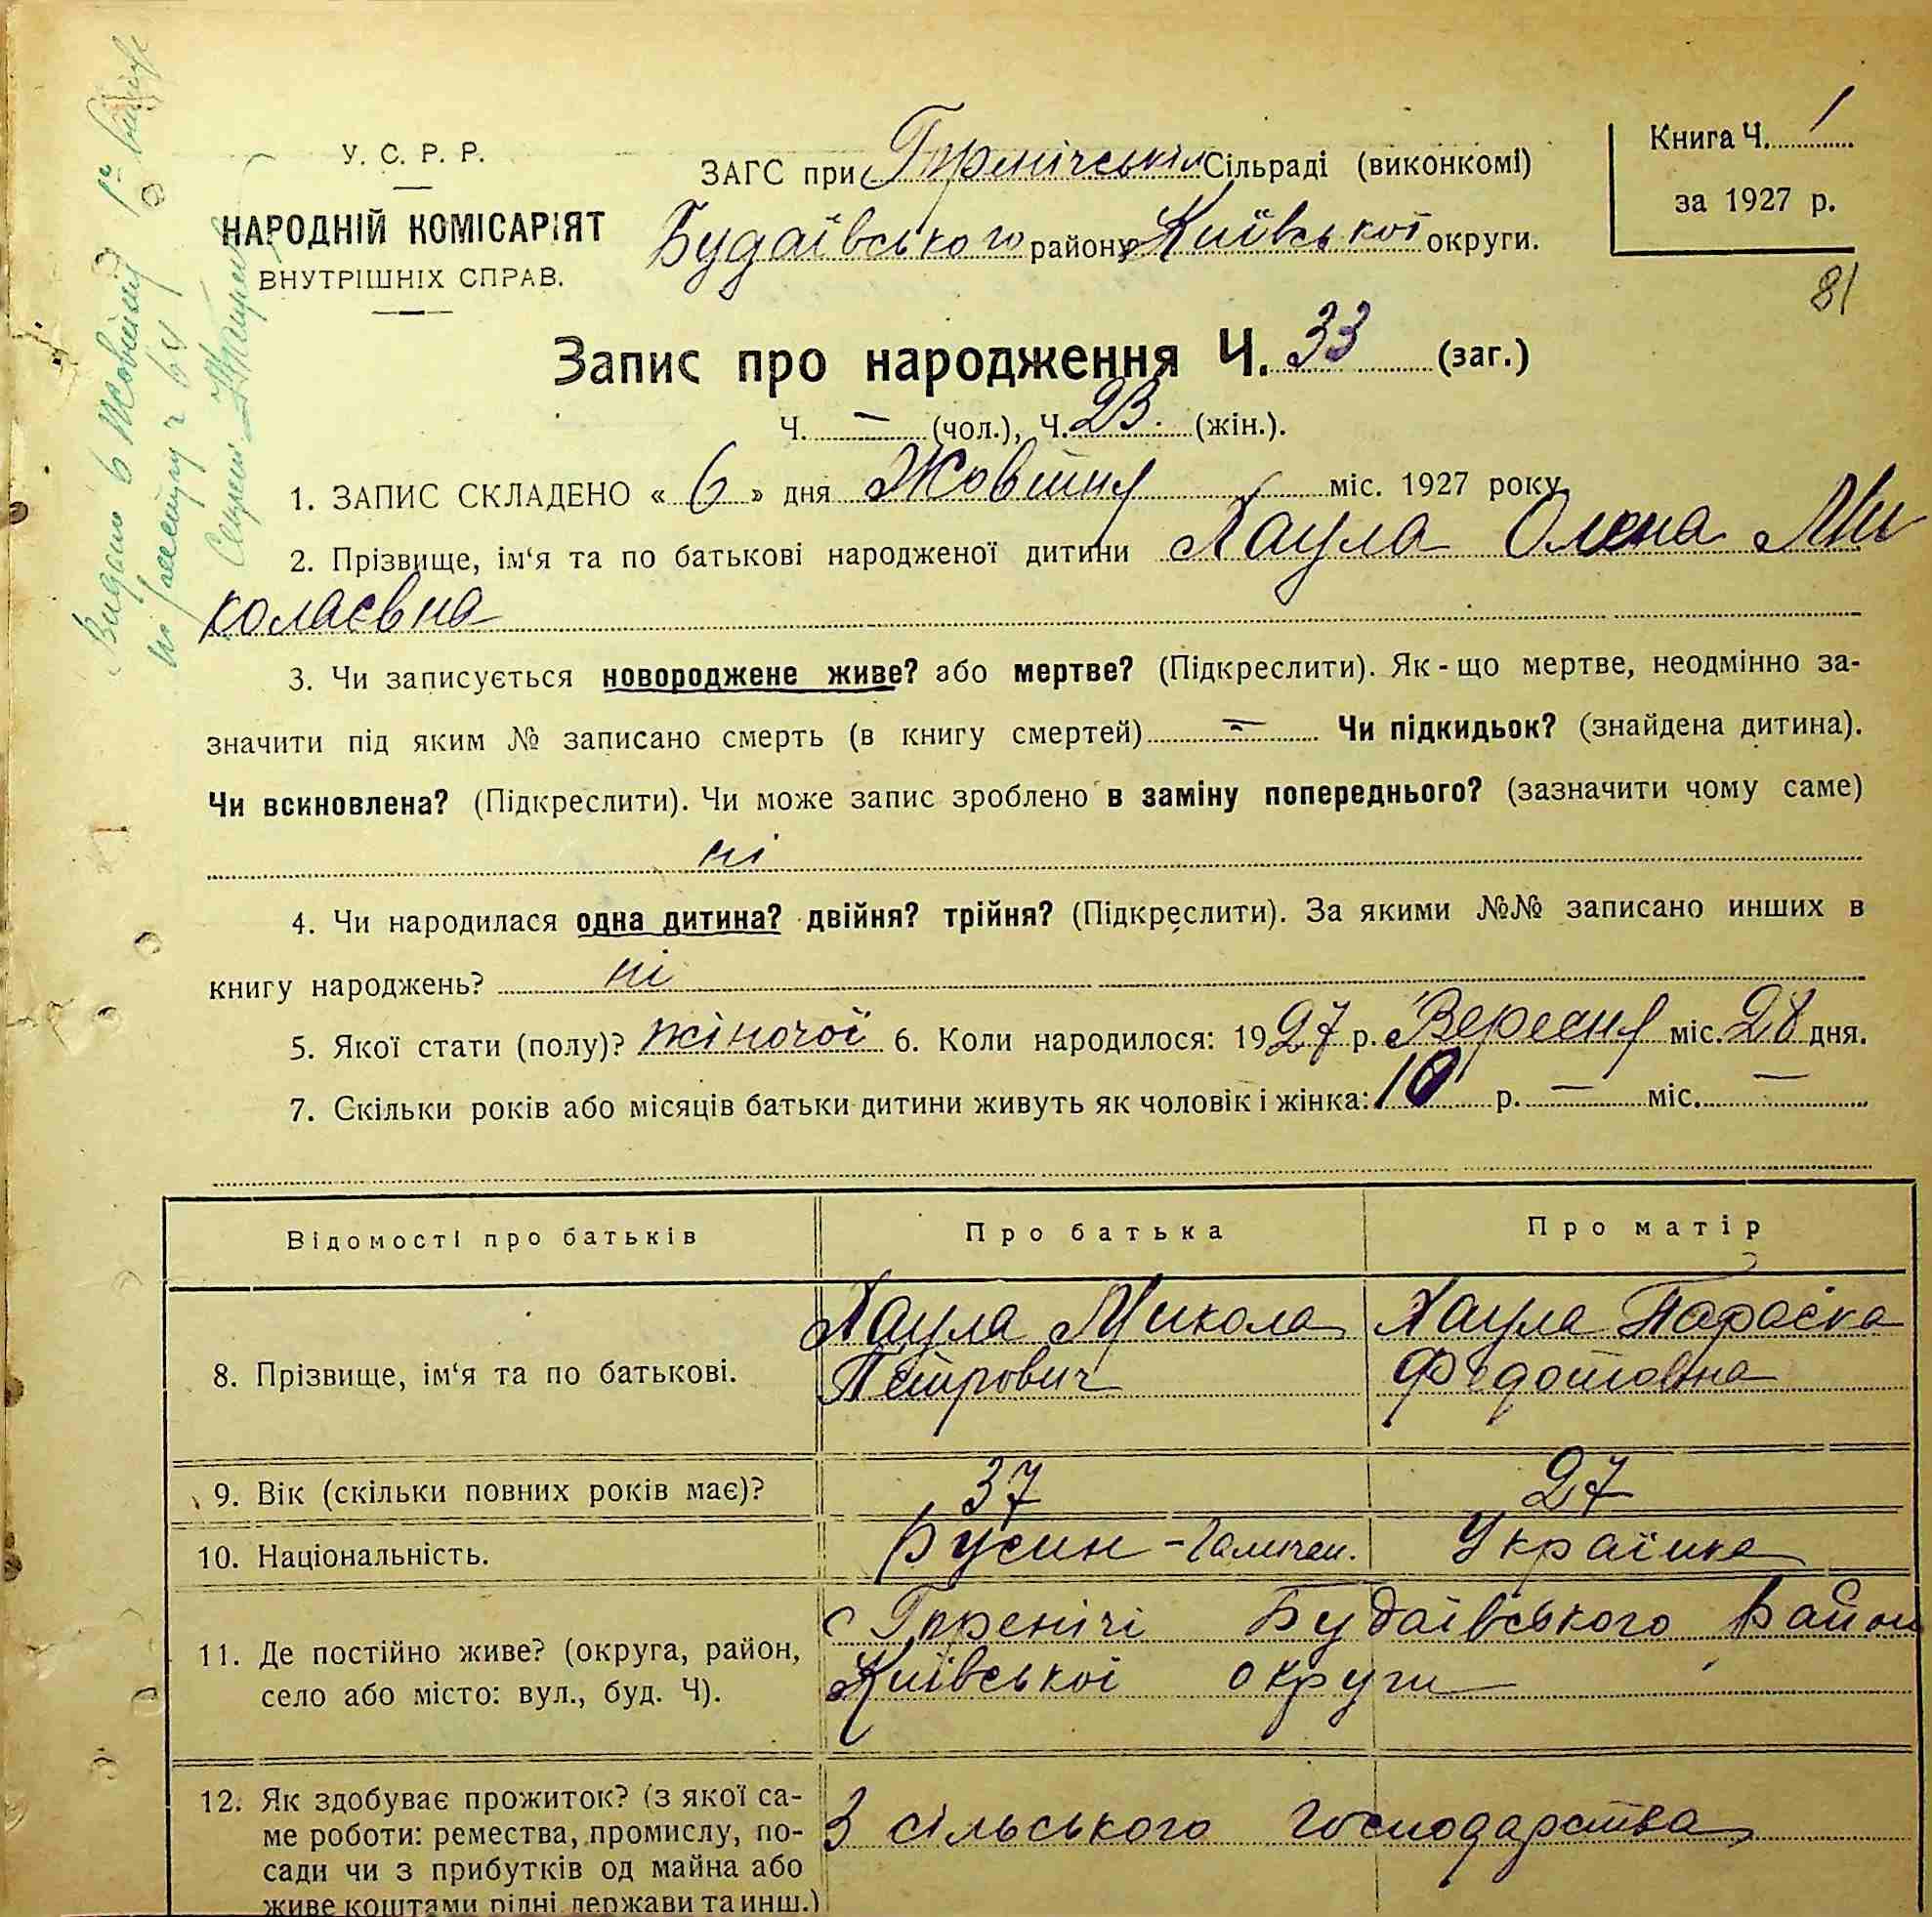 У. С. Р. Р.
НАРОДНІЙ КОМІСАРІЯТ
ВНУТРІШНІХ СПРАВ.
ЗАГС при Гореничській Сільраді (виконкомі)
Будаївського району Київської округи.
Книга Ч. 1
за 1927 р.
81
Запис про народження Ч. 33 (заг.)
Ч. — (чол.), Ч. 23. (жін.).
1. ЗАПИС СКЛАДЕНО « 6 » дня Жовтня міс. 1927 року
2. Прізвище, ім‘я та по батькові народженої дитини Хаула Олена Ми
колаєвна
3. Чи записується новороджене живе? або мертве? (Підкреслити). Як-що мертве, неодмінно за-
значити під яким № записано смерть (в книгу смертей) — Чи підкидьок? (знайдена дитина).
Чи всиновлена? (Підкреслити). Чи може запис зроблено в заміну попереднього? (зазначити чому саме)
ні
4. Чи народилася одна дитина? двійня? трійня? (Підкреслити). За якими №№ записано инших в
книгу народжень? ні
5. Якої стати (полу)? жіночої 6. Коли народилося: 1927 р. Вересня міс. 28 дня.
7. Скільки років або місяців батьки дитини живуть як чоловік і жінка: 10 р. — міс. —
Відомості про батьків Про батька Про матір
8. Прізвище, ім‘я та по батькові.
Хаула Микола
Петрович
Хаула Параска
Федотовна
9. Вік (скільки повних років має)? 37 27
10. Національність. Русин - Галичан. Українка
11. Де постійно живе? (округа, район,
село або місто: вул., буд. Ч).
с Гореничі Будаївського Район
Київської округи
12. Як здобуває прожиток? (з якої са-
ме роботи: ремества, промислу, по-
сади чи з прибутків од майна або
живе коштами рідні держави та инш.)
З сільського господарства
Видано 6 Жовтня